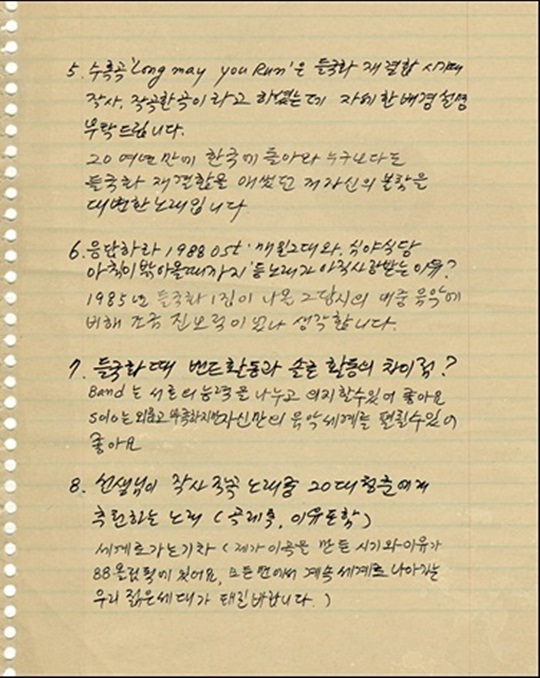 5. 수록곡 'Long may you Run'은 들국화 재결합 시기때
작사, 작곡한곡이라고 하셨는데 자세한 배경설명
부탁드립니다.
20 여년 만에 한국에 돌아와 누구보다도
들국화 재결합을 애썼던 저자신의
대변한 노래입니다
6. 응답하라 1988 OST '매일 그대와, 심야식당
아침이 밝아올때까지' 등 노래가 아직 사랑받는 이유?
1985년 들국화 1집이 나온 그당시의 대중 음악에
비해 조금 진보적이 생각합니다.
7. 들국화때 밴드활동과 솔로 활동의 차이점?
Band는 서로의 능력을 나누고 의지할수있어 좋아요
Solo는 외롭고 자신만의 음악세계를 펼칠수있어
좋아요
8. 선생님이 작사 작곡 노래중 20대청춘에게
추천하는 노래 (곡제목, 이유포함)
세계로가는기차 (제가 이곡을 만든 시기와 이유가
88올림픽에 있어요, 모든면에서 계속 세계로 나아가는
우리 젊은세대가 바랍니다.)